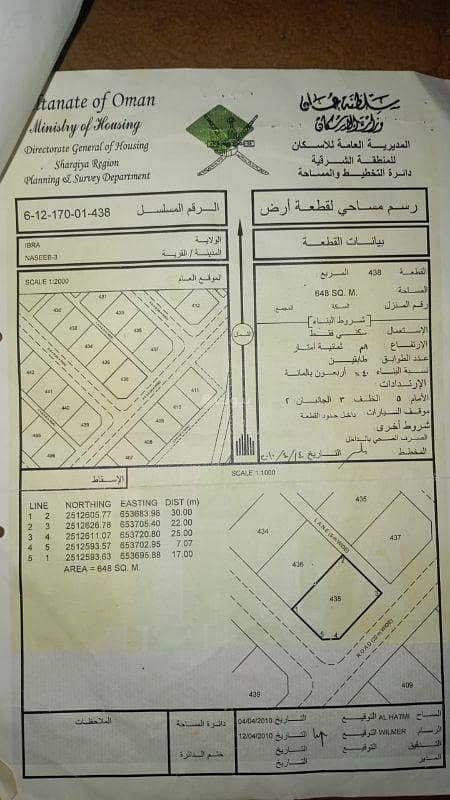 ltanate of Oman
Ministry of Housing
Directorate General of Housing
Sharqiya Region
Planning & Survey Department
سلطنة عمان
وزارة الإسكان
المديرية العامة للاسكان
للمنطقة الشرقية
دائرة التخطيط والمساحة
رسم مساحي لقطعة أرض
الرقم المسلسل
6-12-170-01-438
بيانات القطعة
الولاية
IBRA
المدينة / القرية
NASEEB-3
الموقع العام
SCALE 1:2000
القطعة 438 المربع
المساحة 648 SQ. M.
رقم المنزل السكة المجمع
شروط البناء
الإستعمال سكني فقط
الإرتفاع ٨م ثمانية أمتار
عدد الطوابق طابقين
نسبة البناء ٤٠٪ أربعون بالمائة
الإرتدادات:
الأمام ٥ الخلف ٣ الجانبان ٢
موقف السيارات داخل حدود القطعة
شروط أخرى
الصرف الصحي بالداخل
المخطط
التاريخ
شمال
412
431
433
435
432
437
430
442
411
440
438
441
409
439
455
456
407
408
SCALE 1:1000
الإسقاط
LINE NORTHING EASTING DIST (m)
1 2 2512605.77 653683.98 30.00
2 3 2512626.78 653705.40 22.00
3 4 2512611.07 653720.80 25.00
4 5 2512593.57 653702.95 7.07
5 1 2512593.63 653695.88 17.00
AREA = 648 SQ. M.
435
434
437
436
LANE (6 m WIDE)
438
1
2
3
4
5
ROAD (20 m WIDE)
439
409
الملاحظات
دائرة المساحة
ختم الدائرة
المساح AL HATMI التوقيع التاريخ 04/04/2010
الرسام WILMER التوقيع التاريخ 12/04/2010
التدقيق التوقيع التاريخ
المدير التاريخ